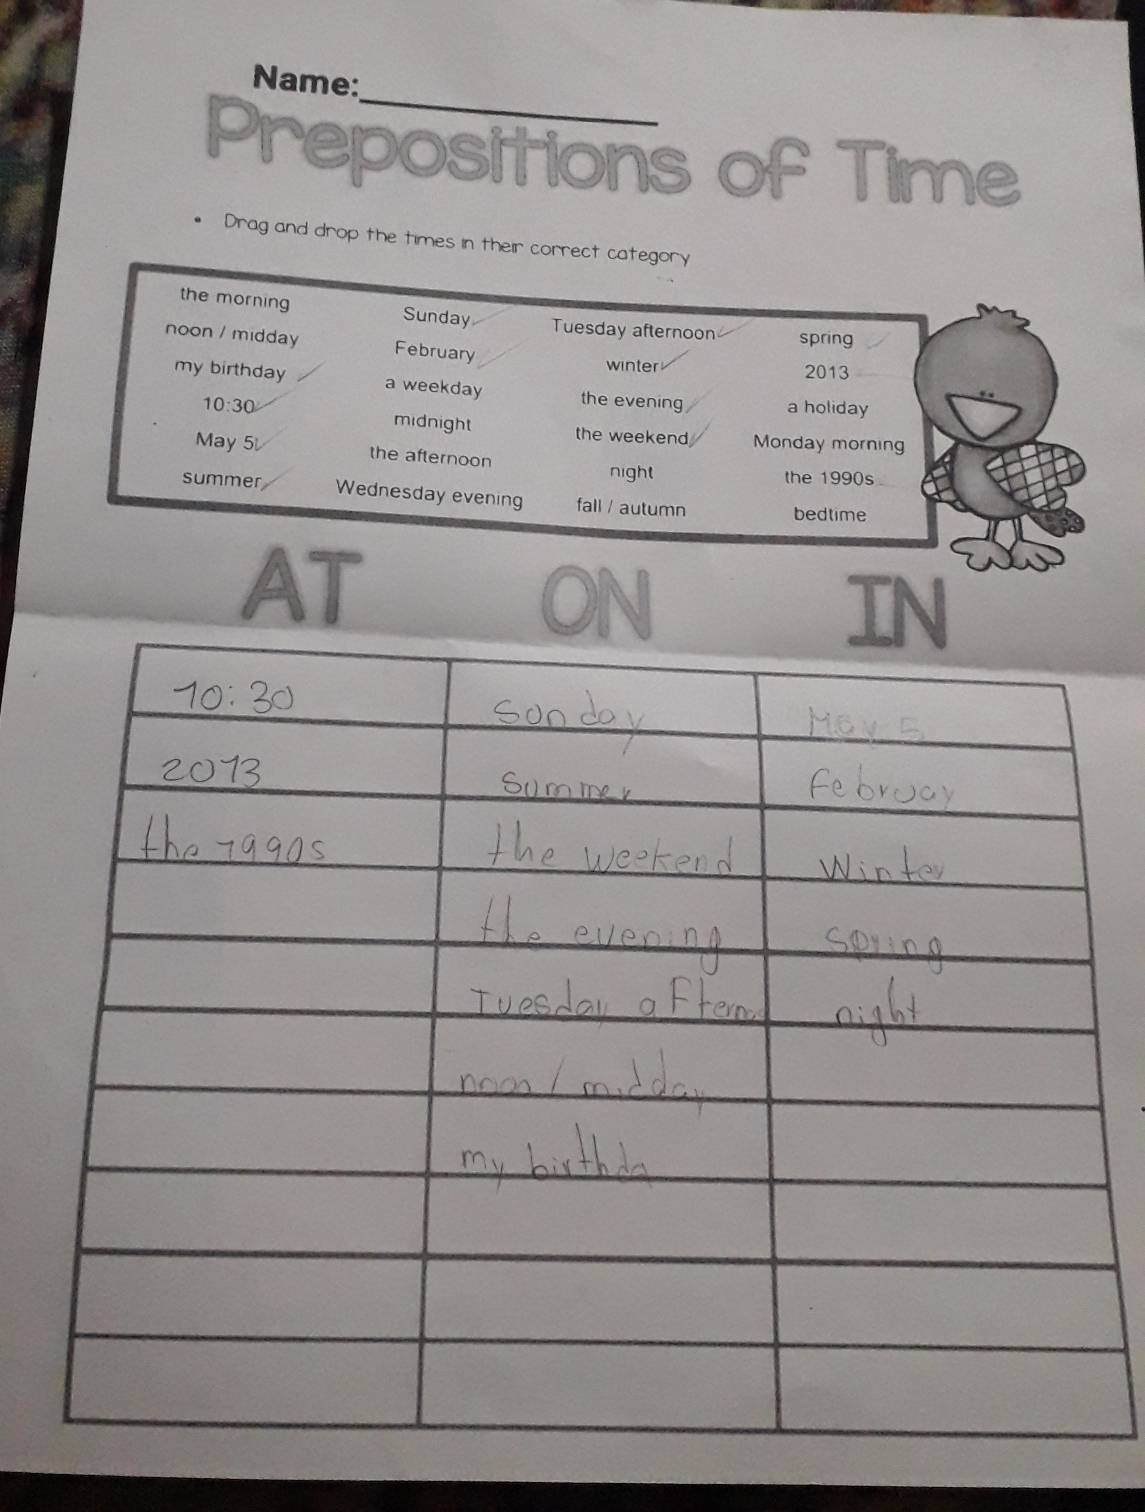 Name:
Prepositions of Time
• Drag and drop the times in their correct category
the morning Sunday Tuesday afternoon spring
noon / midday February winter 2013
my birthday a weekday the evening a holiday
10:30 midnight the weekend Monday morning
May 5 the afternoon night the 1990s
summer Wednesday evening fall / autumn bedtime
AT ON IN
10:30 Sonday May 5
2013 Summer February
the 1990s the weekend Winter
the evening spring
Tuesday afterno night
noon / midday
my birthda